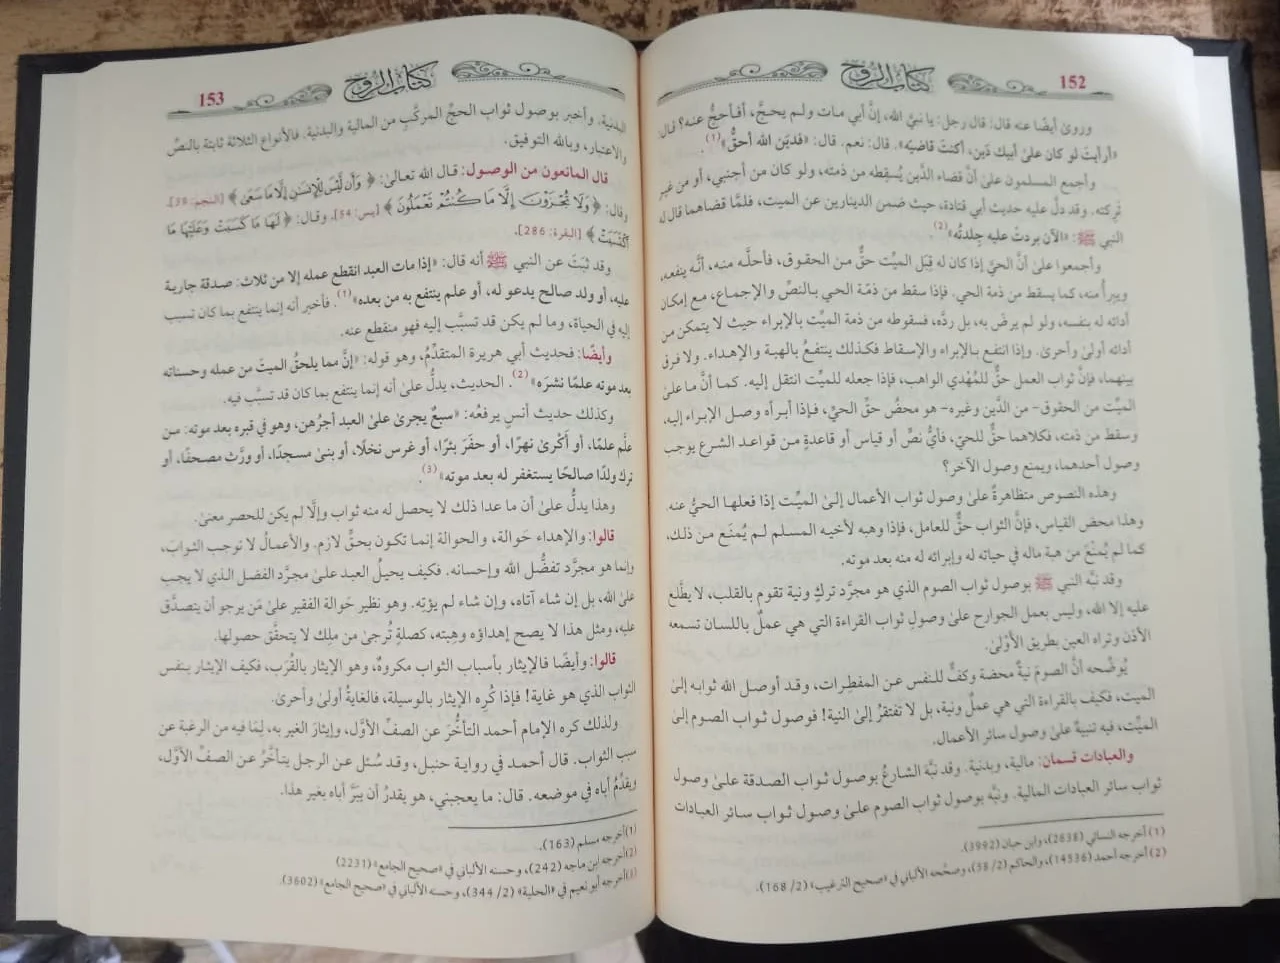 152
كتاب الروح
وروى أيضًا عنه قال: قال رجل: يا نبيَّ الله، إنَّ أبي مات ولم يحجَّ، أفأحجُّ عنه؟ قال:
«أرأيتَ لو كان على أبيك دَين، أكنتَ قاضيَه». قال: نعم. قال: «فدَين الله أحقُّ»(1).
وأجمع المسلمون على أنَّ قضاء الدَّين يُسقِطه من ذمته، ولو كان من أجنبي، أو من غير
تركته. وقد دلَّ عليه حديث أبي قتادة، حيث ضمن الدينارين عن الميت، فلمَّا قضاهما قال له
النبي ﷺ: «الآن بردتَ عليه جِلدتَه»(2).
وأجمعوا على أنَّ الحيَّ إذا كان له قِبَل الميِّت حقٌّ من الحقوق، فأحلَّه منه، أنَّه ينفعه،
ويبرأُ منه، كما يسقط من ذمة الحي. فإذا سقط من ذمّة الحي بالنصِّ والإجماع، مع إمكان
أدائه له بنفسه، ولو لم يرضَ به، بل ردَّه، فسقوطه من ذمة الميِّت بالإبراء حيث لا يتمكن من
أدائه أولىٰ وأحرىٰ. وإذا انتفع بالإبراء والإسقاط فكذلك ينتفعُ بالهبة والإهداء. ولا فرق
بينهما، فإنَّ ثواب العمل حقٌّ للمُهْدي الواهب، فإذا جعله للميِّت انتقل إليه. كما أنَّ ما على
الميِّت من الحقوق- من الدَّين وغيره- هو محضُ حقِّ الحيِّ، فإذا أبرأه وصل الإبراء إليه،
وسقط من ذمته، فكلاهما حقٌّ للحيِّ، فأيُّ نصٍّ أو قياس أو قاعدةٍ من قواعد الشرع يوجب
وصول أحدهما، ويمنع وصول الآخر؟
وهذه النصوص متظاهرةٌ على وصول ثواب الأعمال إلىٰ الميِّت إذا فعلها الحيُّ عنه.
وهذا محض القياس، فإنَّ الثواب حقٌّ للعامل، فإذا وهبه لأخيه المسلم لم يُمنَع من ذلك،
كما لم يُمْنَعْ مَن هبة ماله في حياته له وإبرائه له منه بعد موته.
وقد نبَّه النبي ﷺ بوصول ثواب الصوم الذي هو مجرَّد تركٍ ونية تقوم بالقلب، لا يطَّلع
عليه إلا الله، وليس بعمل الجوارح علىٰ وصولِ ثواب القراءة التي هي عملٌ باللسان تسمعه
الأذن وتراه العين بطريق الأَوْلىٰ.
يُوضّحه أنَّ الصومَ نيةٌ محضة وكفٌّ للنفس عن المفطرات، وقد أوصل الله ثوابه إلىٰ
الميت، فكيف بالقراءة التي هي عملٌ ونية، بل لا تفتقرُ إلىٰ النية! فوصول ثواب الصوم إلىٰ
الميِّت، فيه تنبيهٌ علىٰ وصول سائر الأعمال.
والعبادات قسمان: مالية، وبدنية. وقد نبَّه الشارعُ بوصول ثواب الصدقة علىٰ وصول
ثواب سائر العبادات المالية. ونبَّه بوصول ثواب الصوم علىٰ وصول ثواب سائر العبادات
(1) أخرجه النسائي (2638)، وابن حبان (3992).
(2) أخرجه أحمد (14536)، والحاكم (2/ 58)، وصحَّحه الألباني في «صحيح الترغيب» (2/ 168).
153
كتاب الروح
البدنية. وأخبر بوصول ثواب الحجِّ المركَّبِ من المالية والبدنية. فالأنواع الثلاثة ثابتة بالنصِّ
والاعتبار، وبالله التوفيق.
قال المانعون من الوصول: قال الله تعالىٰ: ﴿ وَأَن لَّيْسَ لِلْإِنسَٰنِ إِلَّا مَا سَعَىٰ ﴾ [النجم: 39].
وقال: ﴿ وَلَا تُجْزَوْنَ إِلَّا مَا كُنتُمْ تَعْمَلُونَ ﴾ [يس: 54]. وقال: ﴿ لَهَا مَا كَسَبَتْ وَعَلَيْهَا مَا
ٱكْتَسَبَتْ ﴾ [البقرة: 286].
وقد ثبتَ عن النبي ﷺ أنه قال: «إذا مات العبد انقطع عمله إلا من ثلاث: صدقة جارية
عليه، أو ولد صالح يدعو له، أو علم ينتفع به من بعده»(1). فأخبر أنه إنما ينتفع بما كان تسبب
إليه في الحياة، وما لم يكن قد تسبَّب إليه فهو منقطع عنه.
وأيضًا: فحديث أبي هريرة المتقدِّمُ، وهو قوله: «إنَّ مما يلحقُ الميتَ من عمله وحسناته
بعد موته علمًا نشرَه»(2). الحديث، يدلُّ علىٰ أنه إنما ينتفع بما كان قد تسبَّب فيه.
وكذلك حديث أنسٍ يرفعُه: «سبعٌ يجرىٰ علىٰ العبد أجرُهن، وهو في قبره بعد موته: من
علَّم علمًا، أو أَكْرىٰ نهرًا، أو حفَرَ بئرًا، أو غرس نخلًا، أو بنىٰ مسجدًا، أو ورَّث مصحفًا، أو
ترك ولدًا صالحًا يستغفر له بعد موته»(3).
وهذا يدلُّ علىٰ أن ما عدا ذلك لا يحصل له منه ثواب وإلَّا لم يكن للحصر معنىٰ.
قالوا: والإهداء حَوالة، والحوالة إنما تكون بحقٍّ لازم. والأعمالُ لا توجب الثوابَ،
وإنما هو مجرَّد تفضُّل الله وإحسانه. فكيف يحيلُ العبد علىٰ مجرَّد الفضل الذي لا يجب
علىٰ الله، بل إن شاء آتاه، وإن شاء لم يؤتِه. وهو نظير حَوالة الفقير علىٰ مَن يرجو أن يتصدَّق
عليه، ومثل هذا لا يصح إهداؤه وهِبته، كصلةٍ تُرجىٰ من ملِك لا يتحقَّق حصولها.
قالوا: وأيضًا فالإيثار بأسباب الثواب مكروهٌ، وهو الإيثار بالقُرَب، فكيف الإيثار بنفس
الثواب الذي هو غاية! فإذا كُرِه الإيثار بالوسيلة، فالغايةُ أولىٰ وأحرىٰ.
ولذلك كره الإمام أحمد التأخُّرَ عن الصفِّ الأوَّل، وإيثارَ الغير به، لِمَا فيه من الرغبة عن
سبب الثواب. قال أحمد في رواية حنبل، وقد سُئل عن الرجل يتأخَّرُ عن الصفِّ الأوَّل،
ويقدِّمُ أباه في موضعه. قال: ما يعجبني، هو يقدرُ أن يَبَرَّ أباه بغير هذا.
(1) أخرجه مسلم (163).
(2) أخرجه ابن ماجه (242)، وحسنه الألباني في «صحيح الجامع» (2231)
(3) أخرجه أبو نعيم في «الحلية» (2/ 344)، وحسنه الألباني في «صحيح الجامع» (3602).